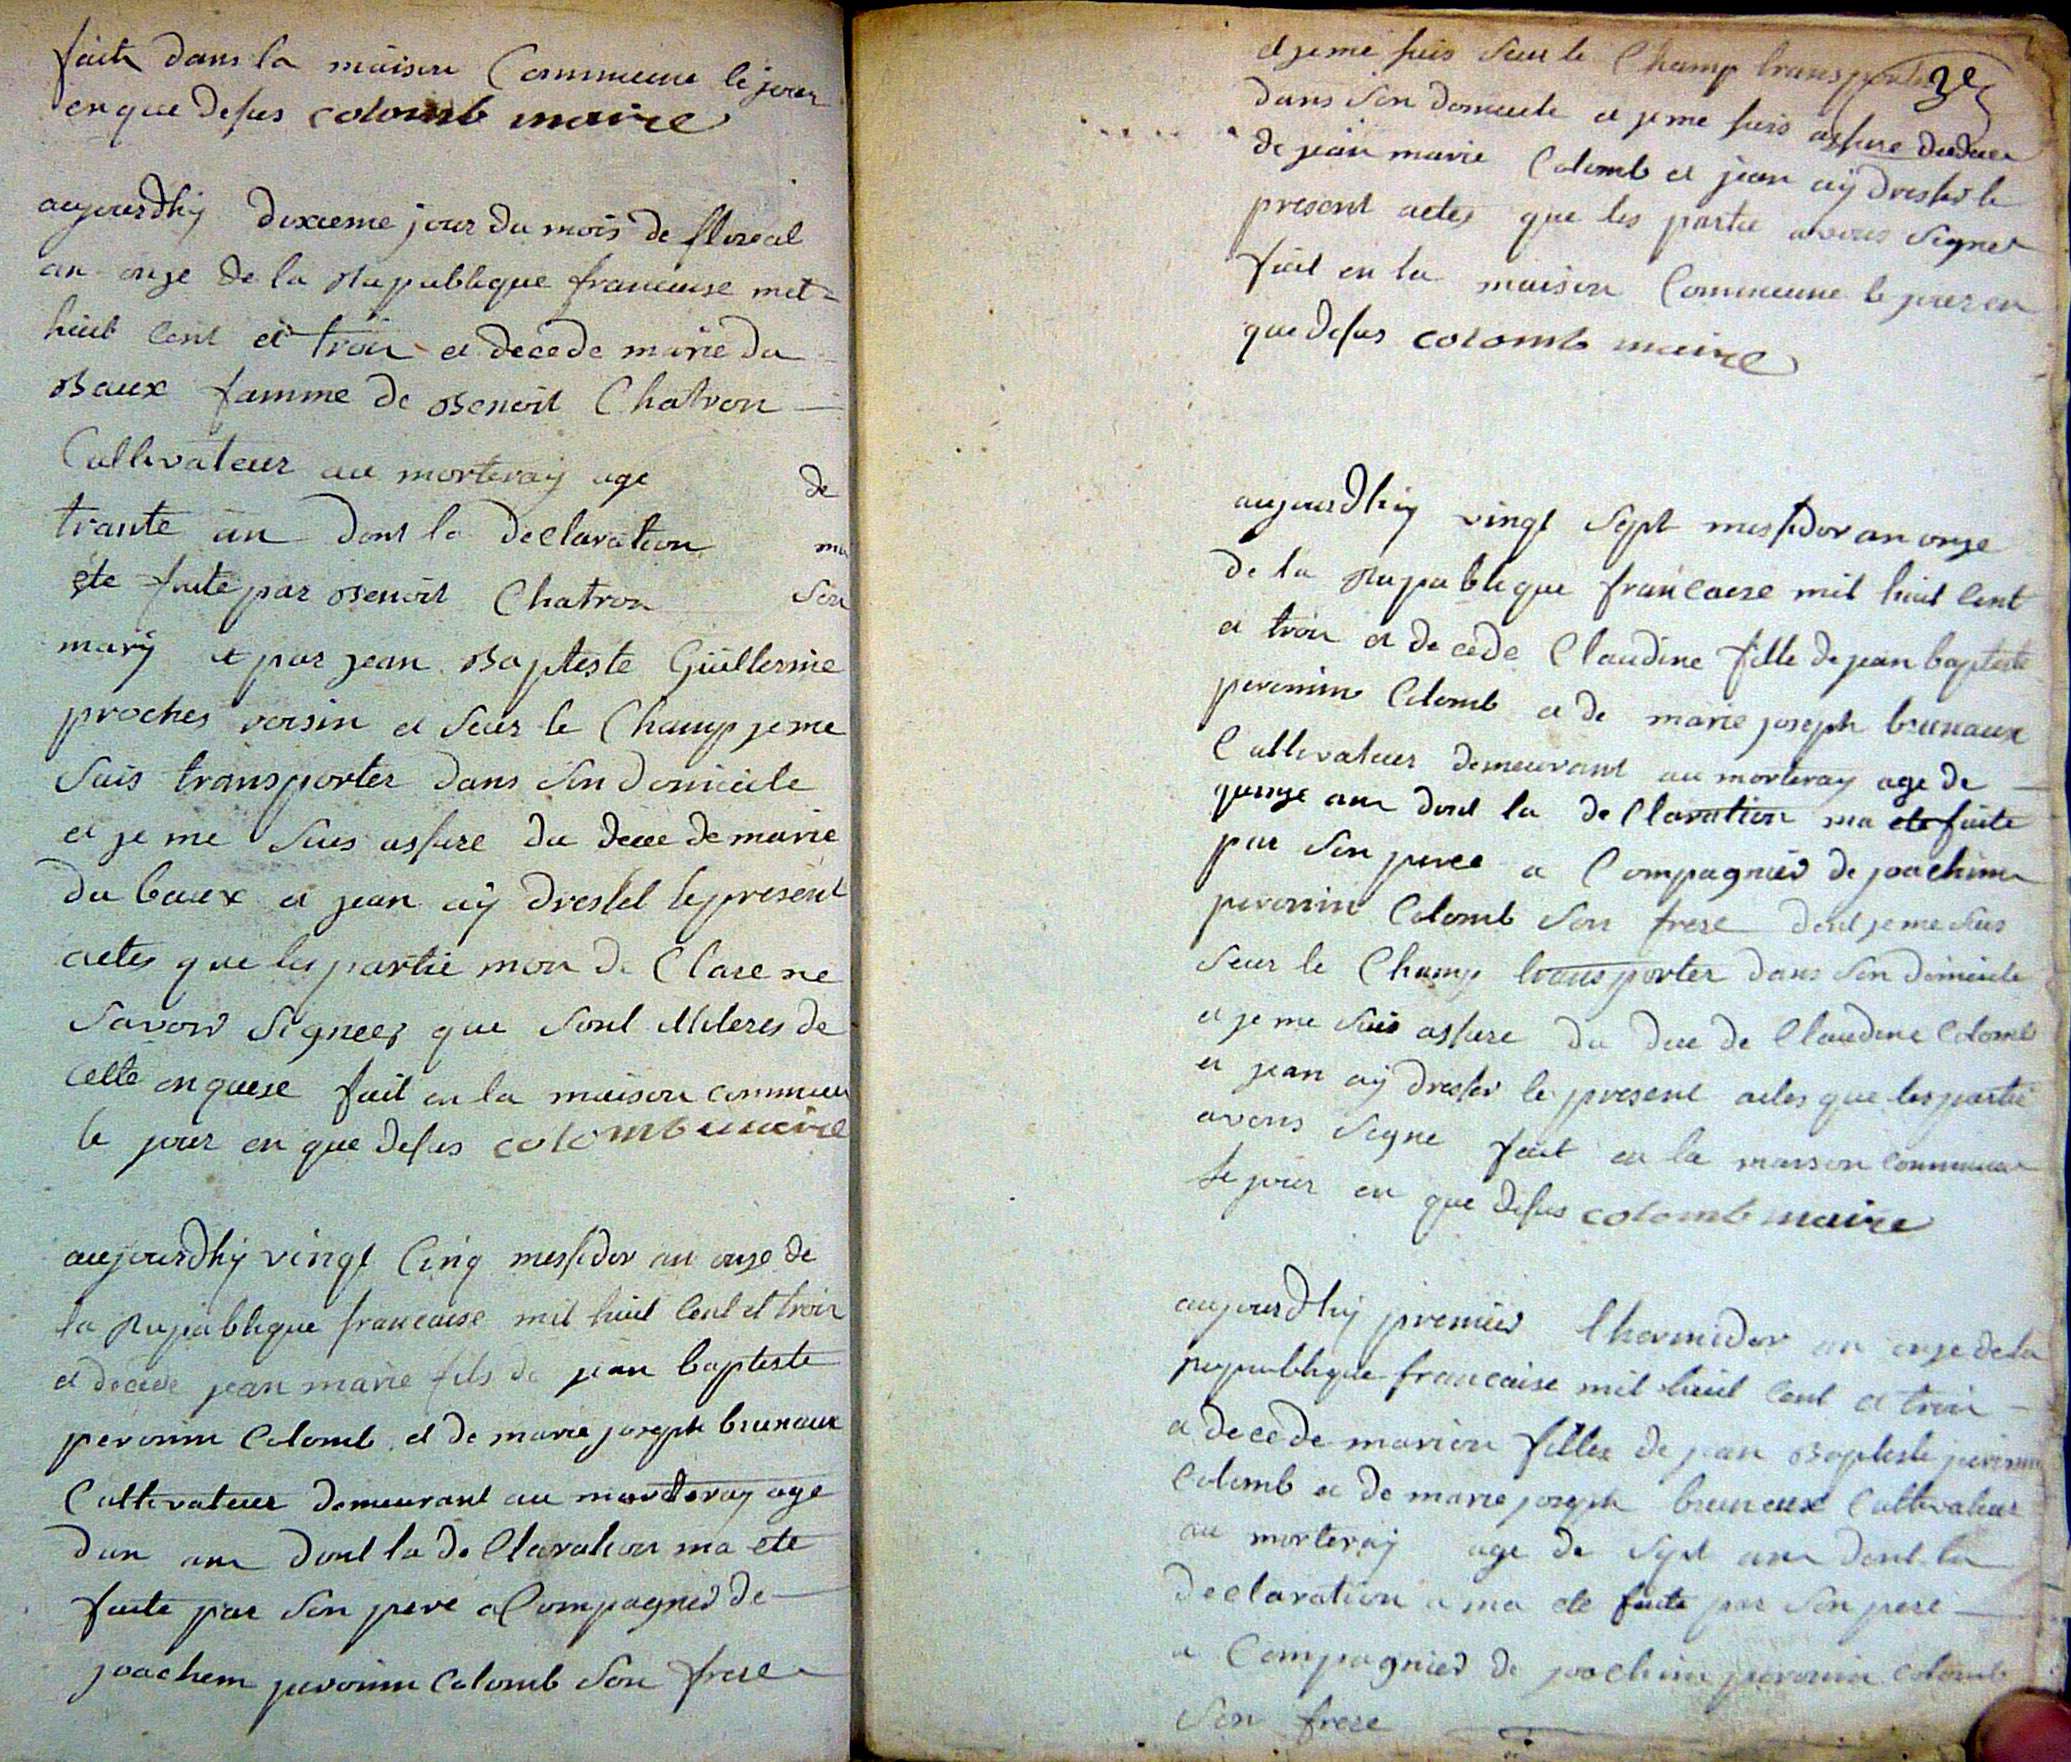 faite dans la maison Commeune le jour
en que desus colomb maire
aujourdhÿ dixieme jour du mois de floreal
an onze de la Rupublique francaise mil
huit cent et troi a decede marie du
Baux famme de Benoit Chatron
Cultivateur au morteraÿ age de
trante an dont la declaration ma
ete faite par Benoit Chatron Son
marÿ et par jean Baptiste Guillermie
proches voisin et Seur le Champ je me
Suis transporter dans Son domicile
et je me Suis assure du dece de marie
du baux et jean aÿ dresset le present
actes que les partie mon de Clare ne
Savoir Signeer que Sont de
cette fait en la maison commeun
le jour en que desus colomb maire
aujourdhÿ vingt Cinq messidor an onze de
la Rupublique francaise mil huit Cent et troi
a decede jean marie fils de jean baptiste
peronin Colomb et de marie joseph brunaux
Cultivateur demeurant au morteray age
dun an dont la de Claration ma ete
faite par Son pere a Compagnier de
joachem peronin Colomb Son frere
3e
et je me suis Seur le Champ transporter
dans Son domicile et je me suis assure du dece
de jean marie Colomb et jean aÿ dresser le
present actes que les partie avons Signer
fait en la maison Commeune le jour en
que desus colomb maire
aujourdhÿ vingt Sept messidor an onze
de la Rupublique francaise mil huit Cent
et troi a decede Claudine fille de jean baptiste
peronin Colomb et de marie joseph brunaux
Cultivateur demeurant au morteray age de
quinze an dont la de Claration ma ete faite
par Son pere a Compagnier de joachim
peronin Colomb Son frere dont je me Suis
Seur le Champ transporter dans Son domicile
et je me Suis assure du dece de Claudine Colomb
et jean aÿ dresser le present actes que les partie
avons Signe fait en la maison commeune
le jour en que desus colomb maire
aujourdhÿ premier thermidor an onze de la
republique francaise mil huit Cent et troi
a decede marion filles de jean Baptiste peronin
Colomb et de marie joseph bruneux Cultivateur
au morteraÿ age de Sept an dont la
declaration a ma ete faite par Son pere
a Compagnier de joachim peronin colomb
Son frere